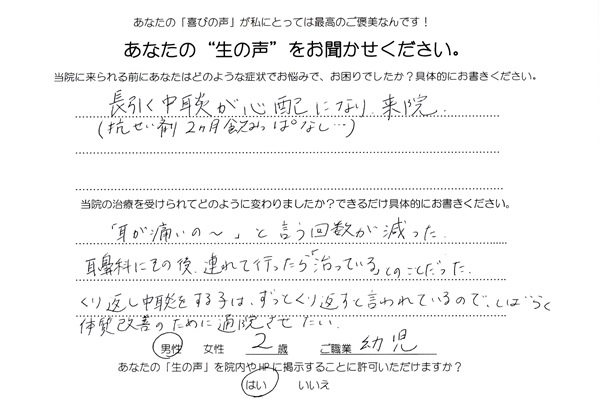 あなたの「喜びの声」が私にとっては最高のご褒美なんです!
あなたの“生の声”をお聞かせください。
当院に来られる前にあなたはどのような症状でお悩みで、お困りでしたか?具体的にお書きください。
長引く中耳炎が心配になり、来院.
(抗せい剤 2ヵ月飲みっぱなし…)
当院の治療を受けられてどのように変わりましたか?できるだけ具体的にお書きください。
「耳が痛いの〜」と言う回数が減った.
耳鼻科にその後、連れて行ったら「治っている」とのことだった.
くり返し中耳炎をする子は、ずっとくり返すと言われているので、しばらく
体質改善のために通院させたい.
男性 女性 2歳 ご職業 幼児
あなたの「生の声」を院内やHPに掲示することに許可いただけますか?
はい いいえ